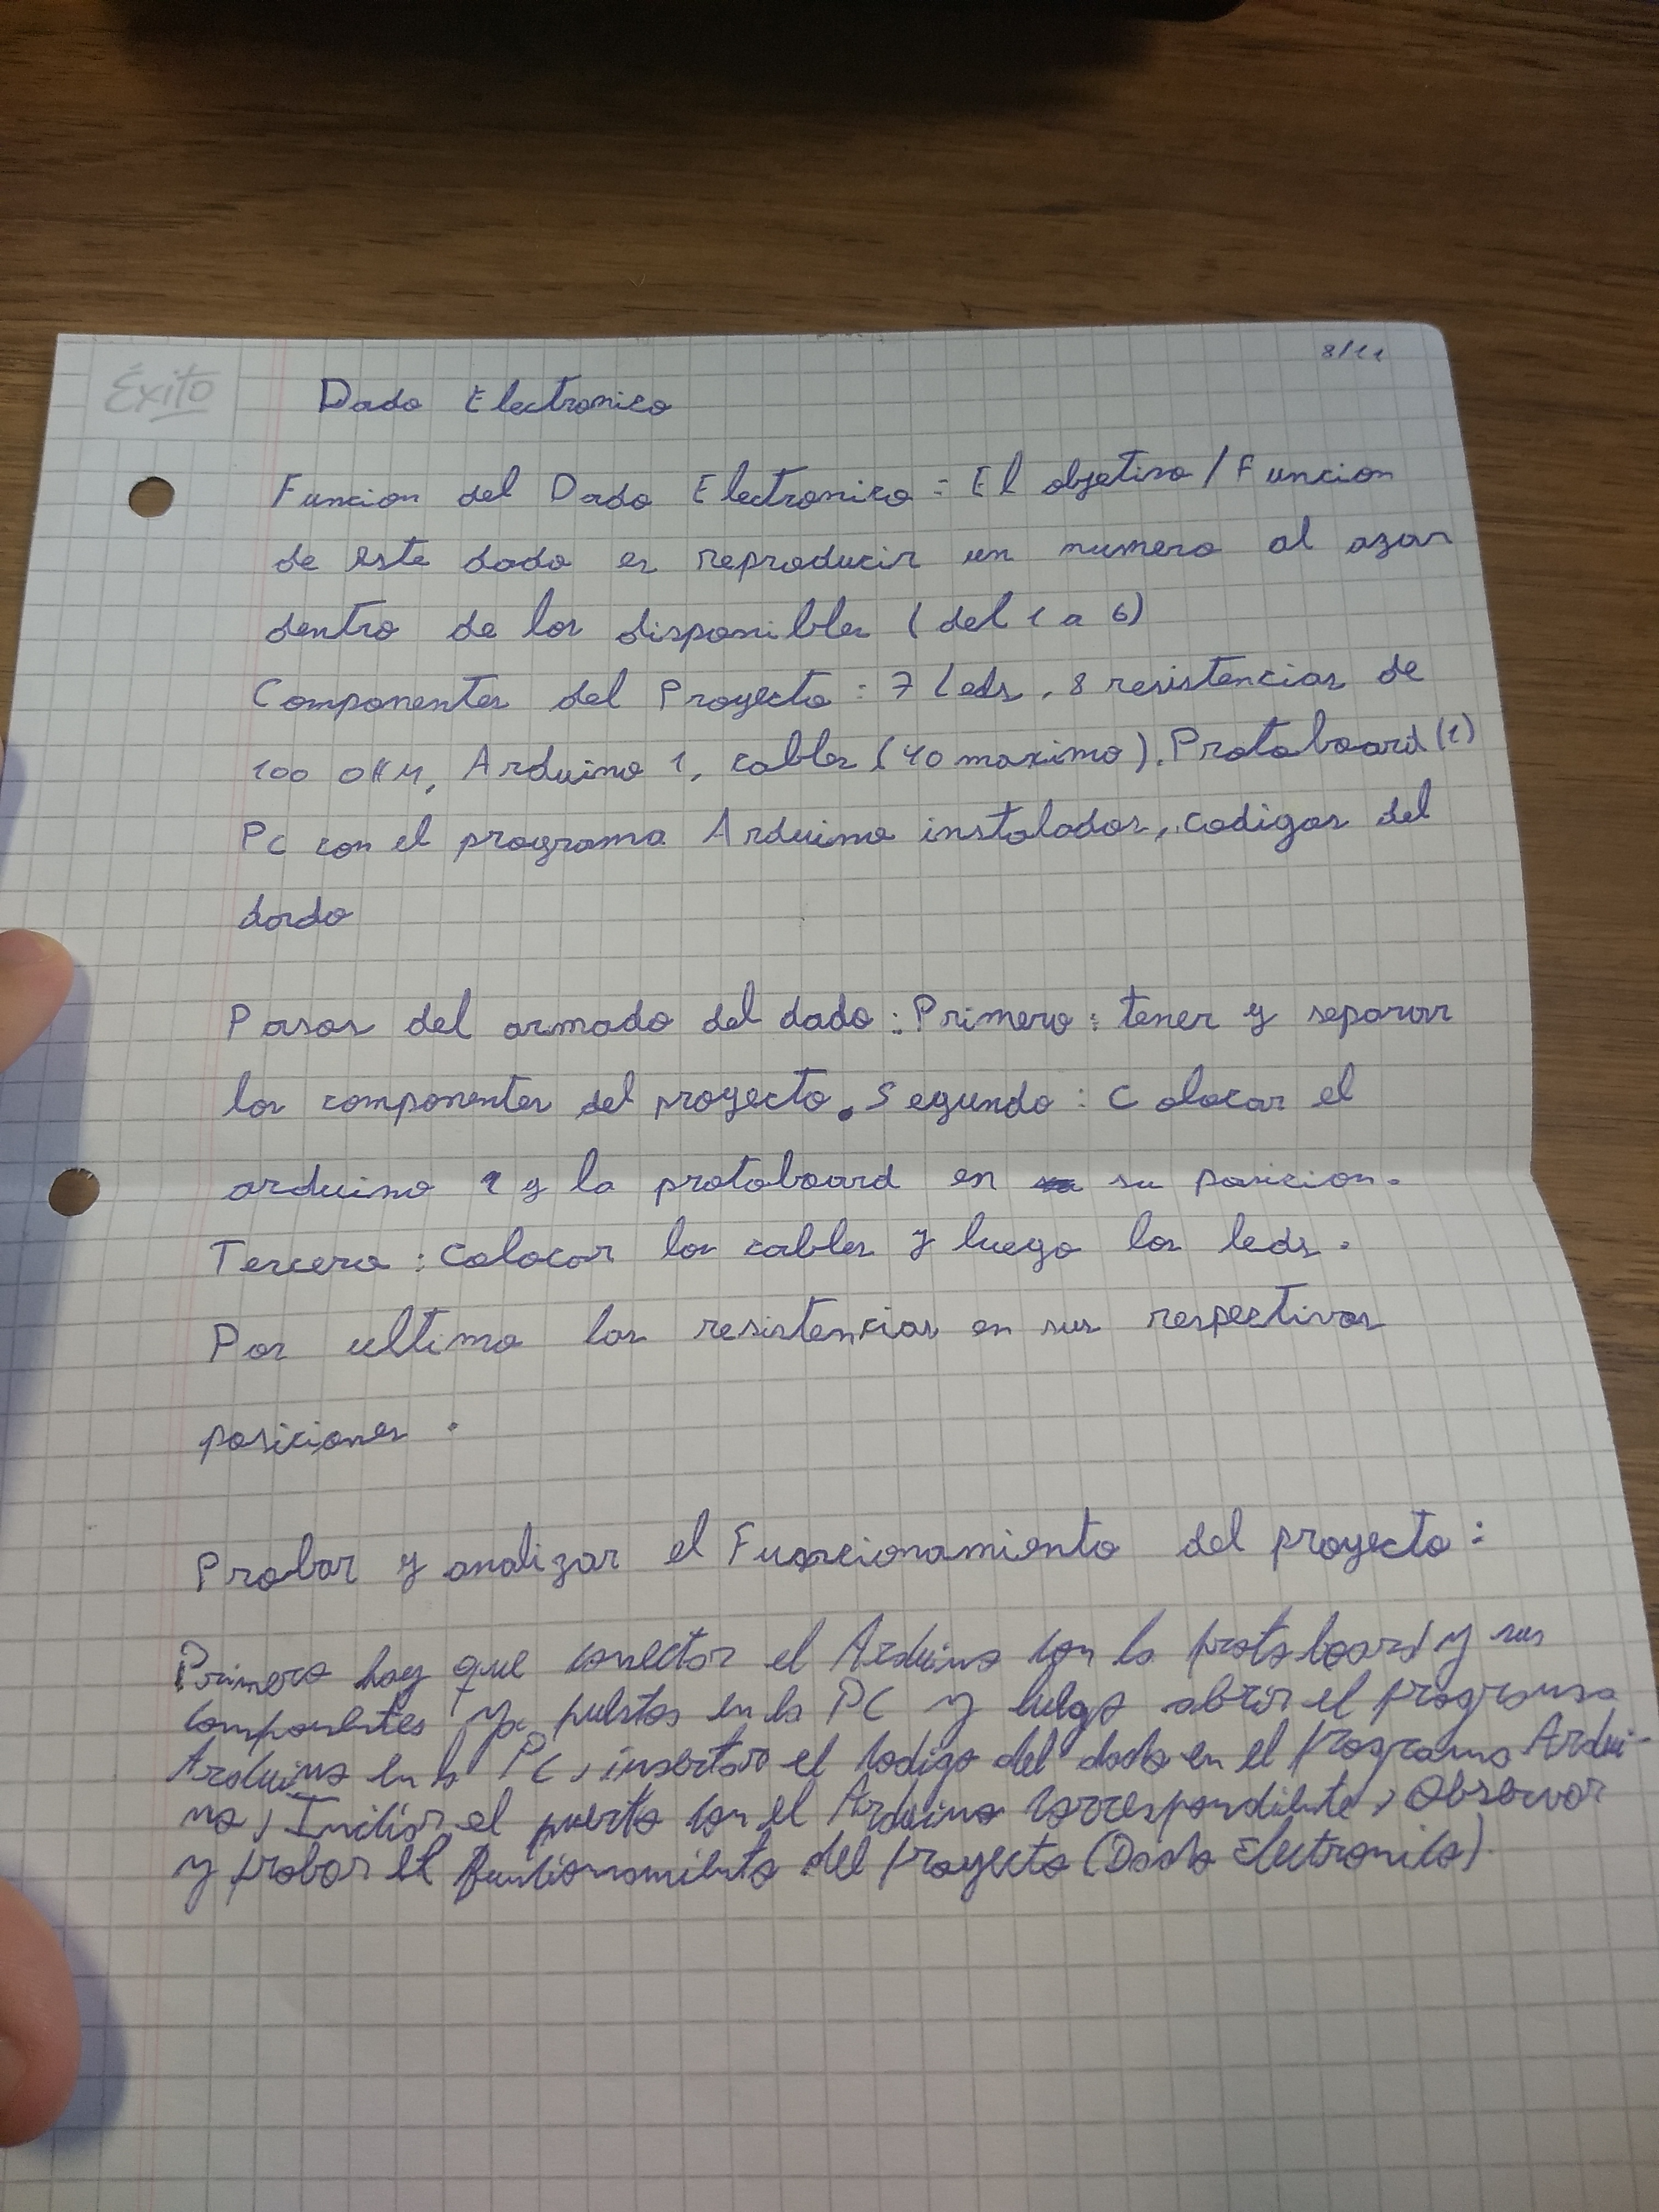 8/11
Éxito
Dado Electronico
Funcion del Dado Electronico: El objetivo/Funcion
de este dado es reproducir un numero al azar
dentro de los disponibles (del 1 a 6)
Componentes del Proyecto: 7 Leds, 8 resistencias de
100 OHM, Arduino 1, cables (40 maximo). Protoboard (1)
PC con el programa Arduino instalados, codigos del
dado
Pasos del armado del dado: Primero: tener y separar
los componentes del proyecto. Segundo: Colocar el
arduino 1 y la protoboard en su posicion.
Tercero: Colocar los cables y luego los leds.
Por ultimo las resistencias en sus respectivas
posiciones.
Probar y analizar el Funcionamiento del proyecto:
Primero hay que conectar el Arduino con la protoboard y sus
componentes ya puestos en la PC y luego abrir el programa
Arduino en la PC, insertar el codigo del dado en el programa Ardui-
no, Iniciar el puerto con el Arduino correspondiente, Observar
y probar el funcionamiento del proyecto (Dado Electronico).